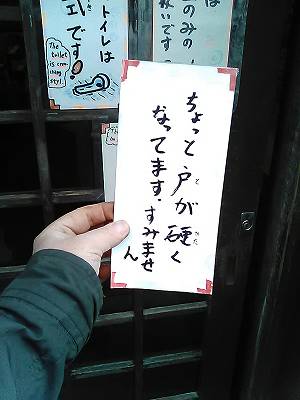 ちょっと戸が硬く
なってます。すみませ
ん
と
かた
トイレは
式です!
The toilet
is
style.
は
のみの